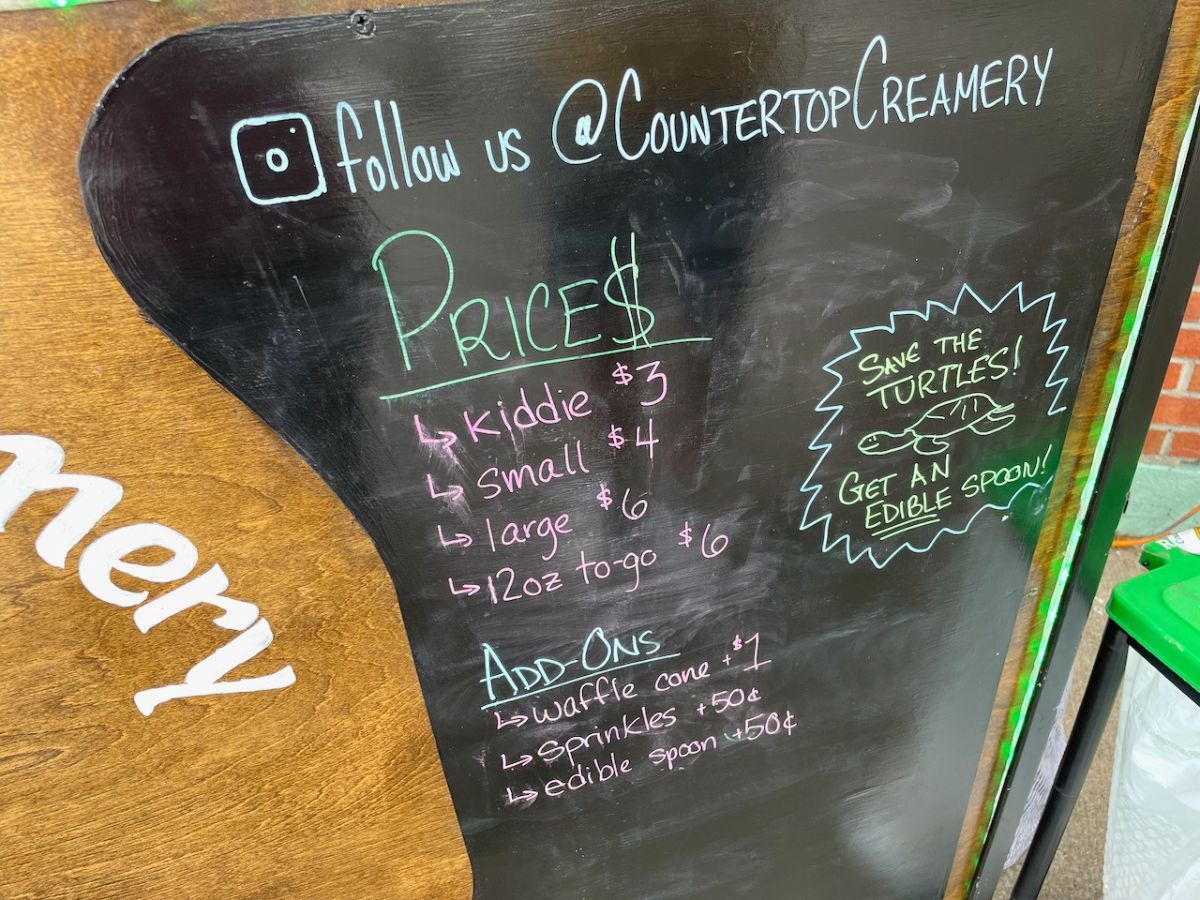 follow us @CountertopCreamery
PRICE$
↳ kiddie $3
↳ small $4
↳ large $6
↳ 12oz to-go $6
ADD-ONS
↳ waffle cone +$1
↳ sprinkles +50¢
↳ edible spoon +50¢
SAVE THE
TURTLES!
GET AN
EDIBLE SPOON!
mery